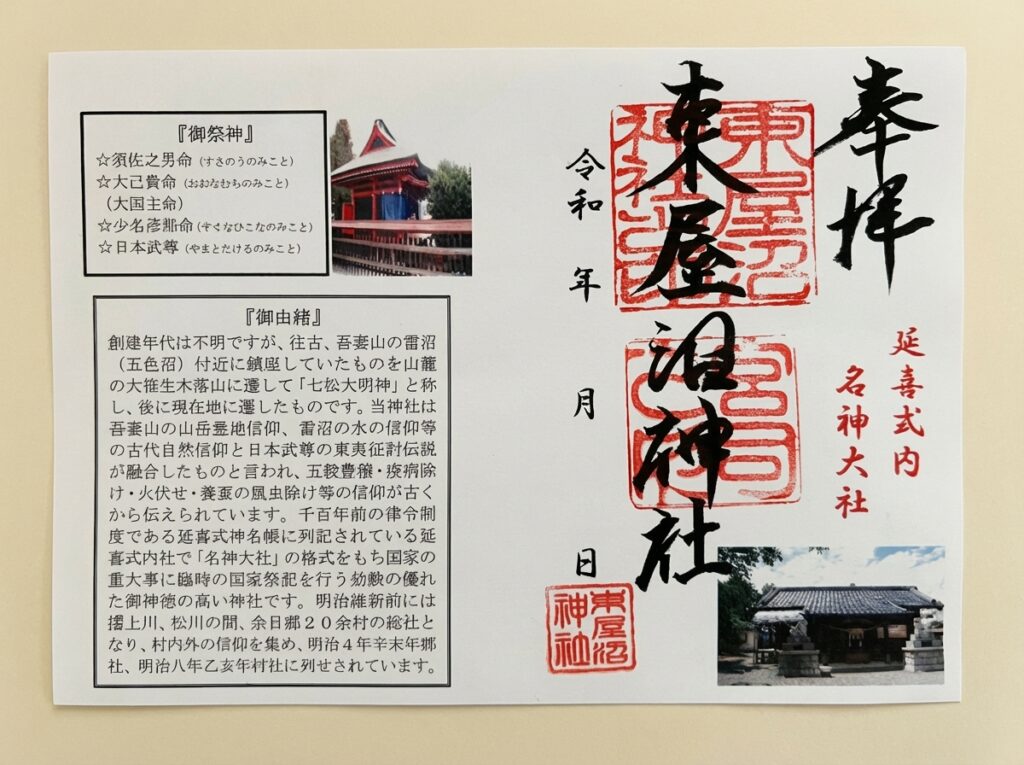 奉拝
延喜式内
名神大社
東屋沼神社
令和 年 月 日
東屋沼
神社
『御祭神』
☆須佐之男命(すさのうのみこと)
☆大己貴命(おおなむちのみこと)
(大国主命)
☆少名彦那命(すくなひこなのみこと)
☆日本武尊(やまとたけるのみこと)
『御由緒』
創建年代は不明ですが、往古、吾妻山の雷沼
(五色沼)付近に鎮座していたものを山麓
の大笹生木落山に遷して「七松大明神」と称
し、後に現在地に遷したものです。当神社は
吾妻山の山岳霊地信仰、雷沼の水の信仰等
の古代自然信仰と日本武尊の東夷征討伝説
が融合したものと言われ、五穀豊穣・疫病除
け・火伏せ・養蚕の風虫除け等の信仰が古く
から伝えられています。千百年前の律令制
度である延喜式神名帳に列記されている延
喜式内社で「名神大社」の格式をもち国家の
重大事に臨時の国家祭祀を行う効験の優れ
た御神徳の高い神社です。明治維新前には
摺上川、松川の間、余目郷20余村の総社と
なり、村内外の信仰を集め、明治4年辛未年郷
社、明治八年乙亥年村社に列せされています。